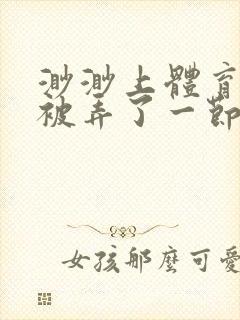 渺渺上體育
被弄了一節
女孩那麼可愛